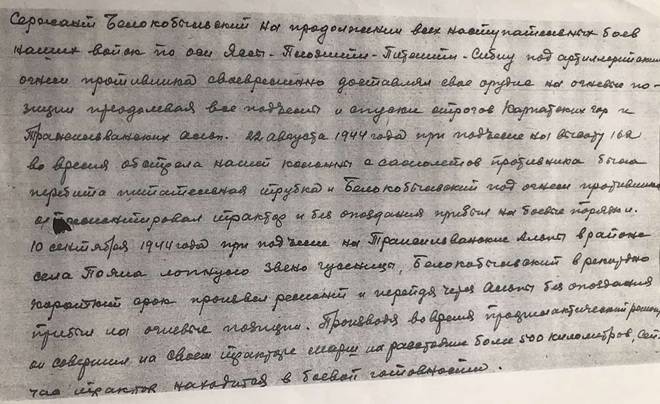 Сержант Белокобыльский на продолжении всех наступательных боев
наших войск по оси Яссы - Плоэшти - Питешти - Сибиу под артиллерийским
огнем противника своевременно доставлял свое орудие на огневые по-
зиции преодолевая все подъемы и спуски отрогов Карпатских гор и
Трансильванских Альп. 22 августа 1944 года при подъеме на высоту 162
во время обстрела нашей колонны с самолетов противника была
перебита питательная трубка и Белокобыльский под огнем противника
отремонтировал трактор и без опоздания прибыл на боевые порядки.
10 сентября 1944 года при подъеме на Трансильванские Альпы в районе
села Пояна лопнуло звено гусеницы, Белокобыльский в
короткий срок произвел ремонт и перейдя через Альпы без опоздания
прибыл на огневые позиции. Производя во время профилактический ремонт,
он совершил на своем тракторе марш на расстояние более 500 километров, сей-
час трактор находится в боевой готовности.